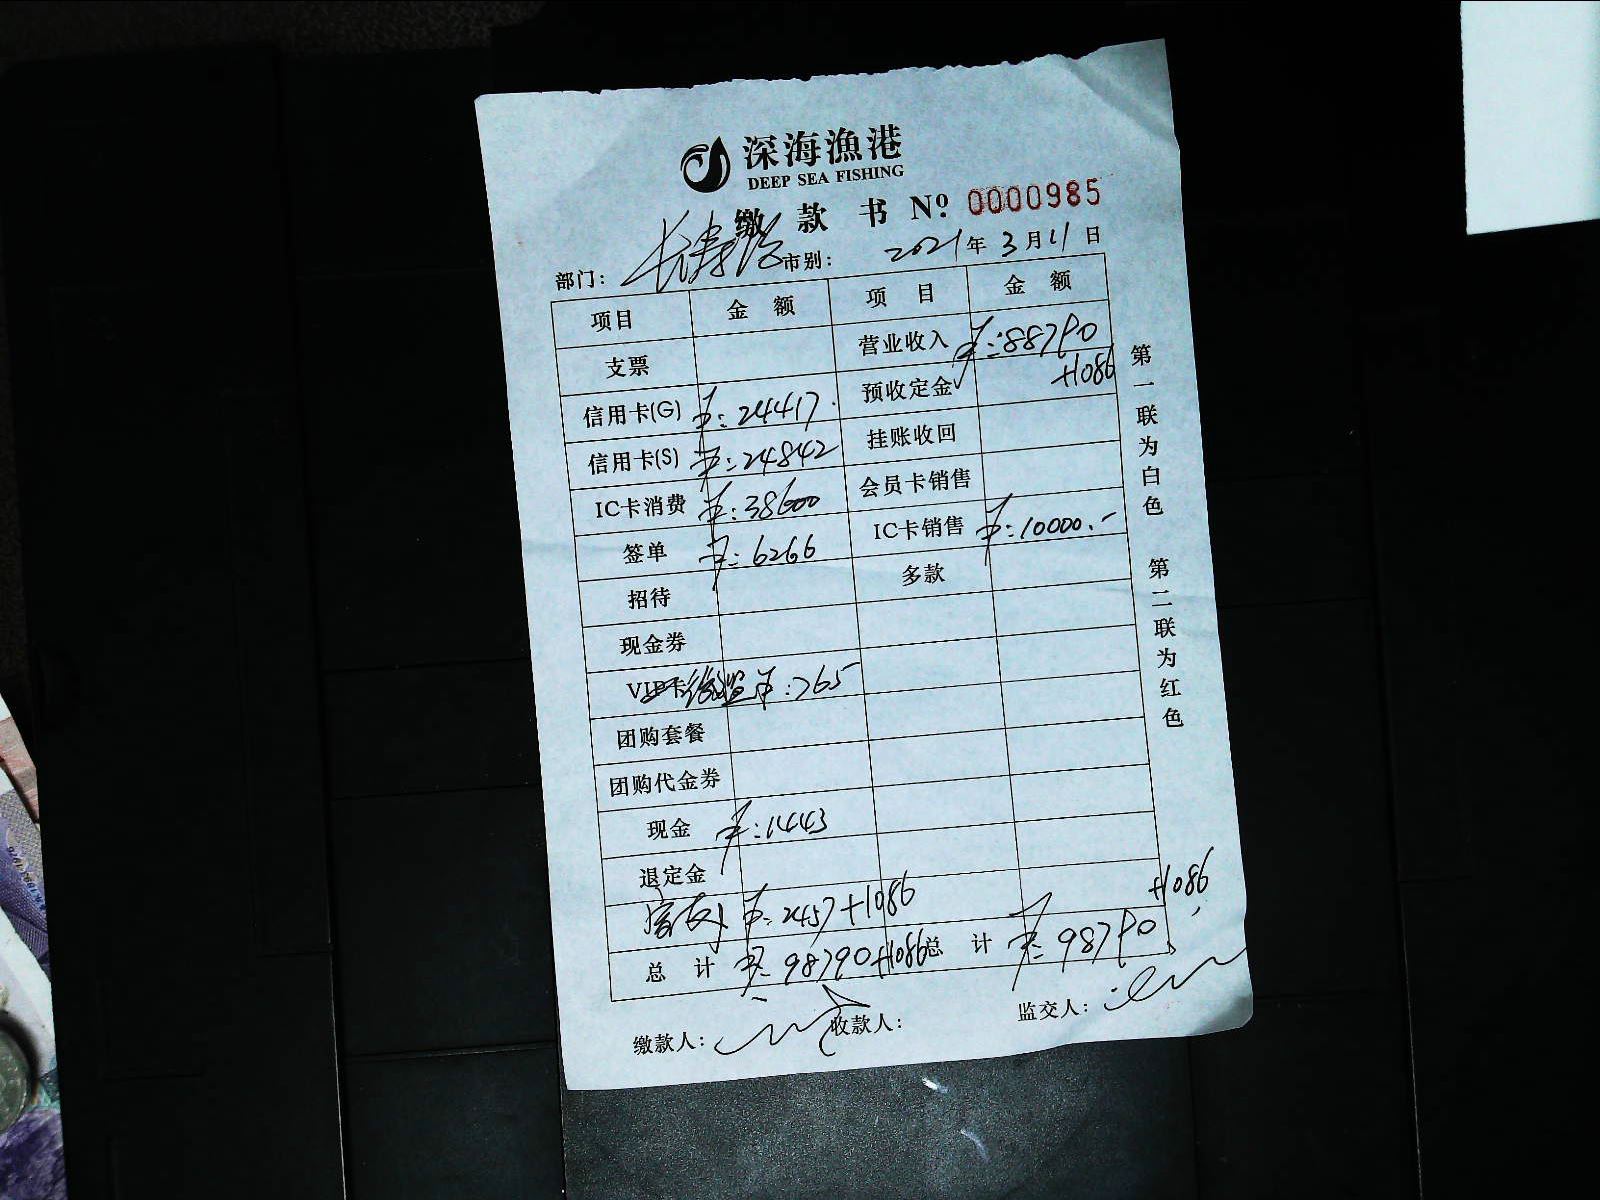 深海漁港
DEEP SEA FISHING
缴款书 Nº 0000985
部门: 长寿路 市别: 2021年3月11日
项目 金额 项目 金额
支票 营业收入 ¥:88790
信用卡(G) ¥:24417. 预收定金 +1086
信用卡(S) ¥:24842 挂账收回
IC卡消费 ¥:38600 会员卡销售
签单 ¥:6266 IC卡销售 ¥:10000.-
招待 多款
现金券
VIP卡 ¥:765
团购套餐
团购代金券
现金 ¥:1443
退定金
¥:2457+1086 +1086
总计 ¥:98790+1086 总计 ¥:98790
缴款人: 收款人: 监交人:
第一联为白色 第二联为红色